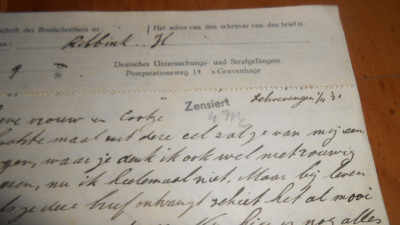 schrift des Briefschreibers is: Het adres van den schrijver van den brief is:
Ribbink H
9 St
Deutsches Untersuchungs- und Strafgefängnis
Pompstationsweg 14 's-Gravenhage
Zensiert
Scheveningen
vrouw en Cootje
maal uit deze cel zal ze van mij een
gen, waar je denk ik ook wel met rouwig
nu ik heelemaal niet. Maar bij leven
als je deze brief ontvangt ziet het al mooi
is nog alles